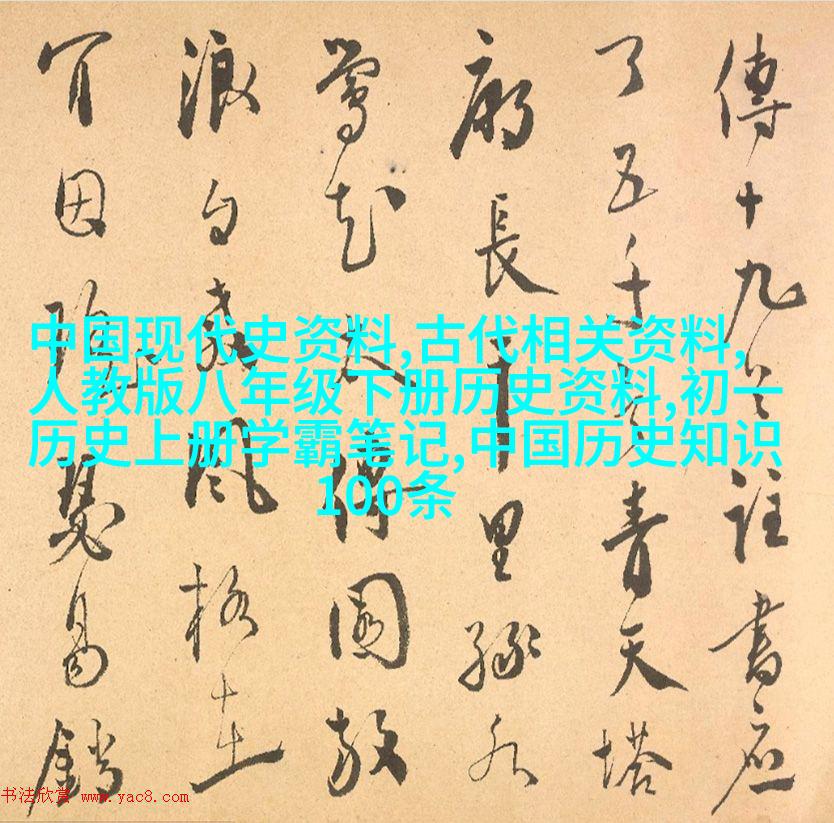 中国现代史资料,古代相关资料,
人教版八年级下册历史资料,初一
历史上册学霸笔记,中国历史知识
100条
傳十九註書應
了五千青天塔
長里綠水
鶯花園
浪白風格在
因易銷
书法欣赏 www.yac8.com